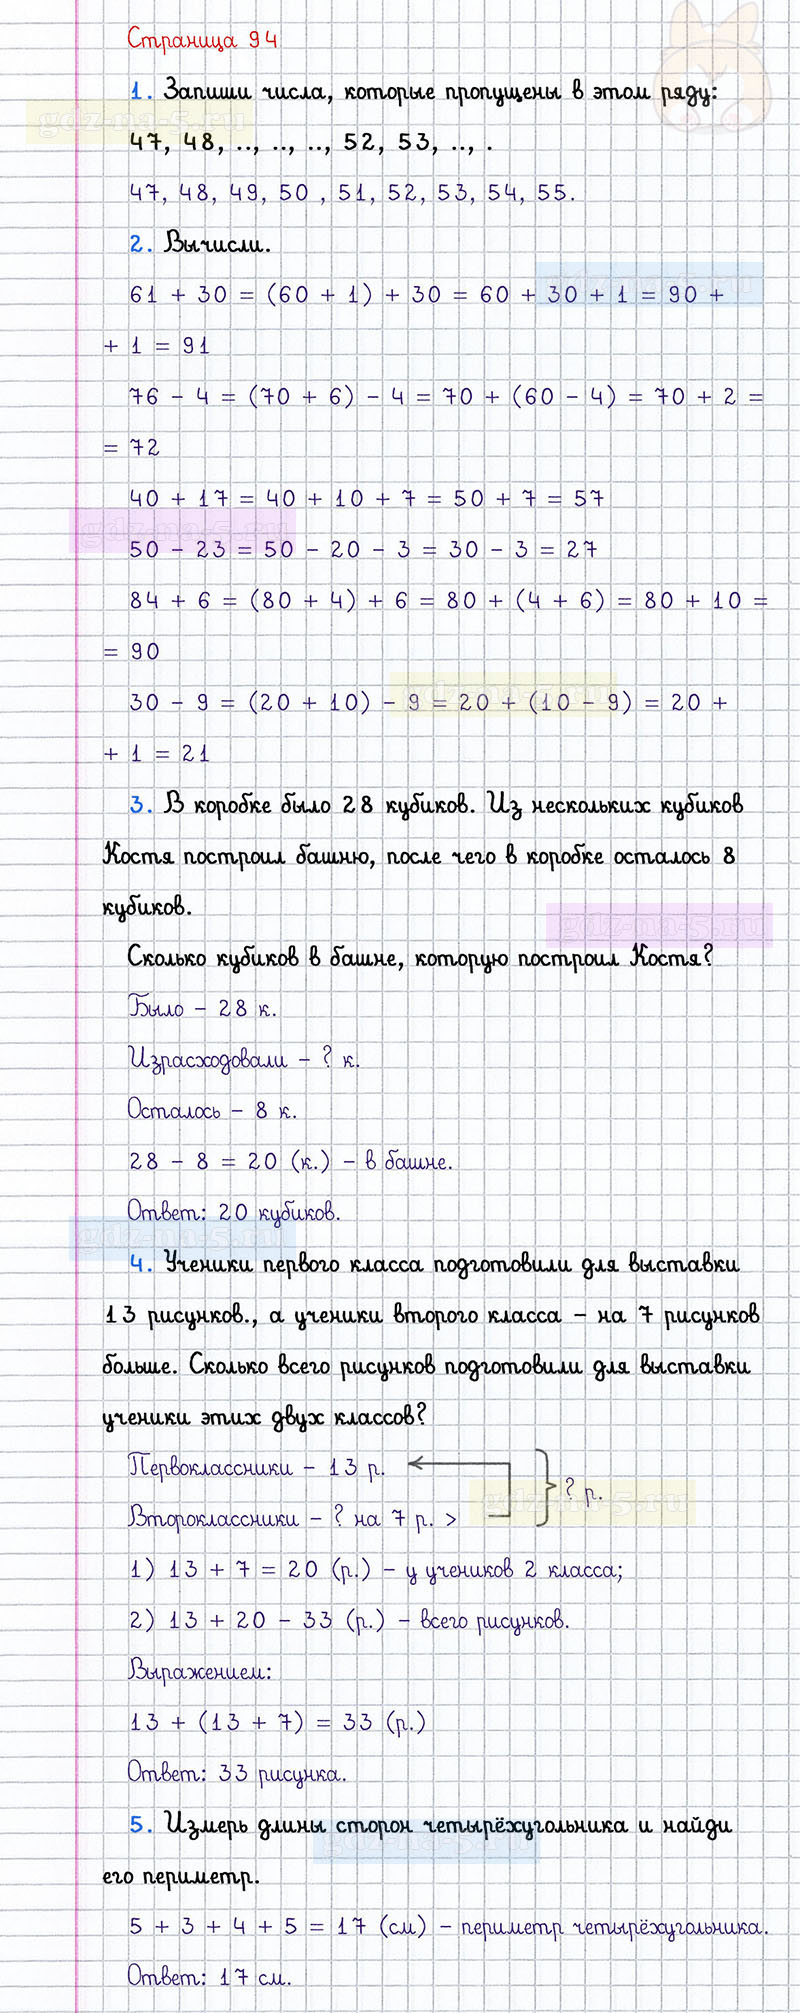 Страница 94
1. Запиши числа, которые пропущены в этом ряду:
gdz-na-5.ru
47, 48, .., .., .., 52, 53, .., .
47, 48, 49, 50 , 51, 52, 53, 54, 55.
2. Вычисли.
gdz-na-5.ru
61 + 30 = (60 + 1) + 30 = 60 + 30 + 1 = 90 +
+ 1 = 91
76 - 4 = (70 + 6) - 4 = 70 + (60 - 4) = 70 + 2 =
= 72
40 + 17 = 40 + 10 + 7 = 50 + 7 = 57
gdz-na-5.ru
50 - 23 = 50 - 20 - 3 = 30 - 3 = 27
84 + 6 = (80 + 4) + 6 = 80 + (4 + 6) = 80 + 10 =
= 90
gdz-na-5.ru
30 - 9 = (20 + 10) - 9 = 20 + (10 - 9) = 20 +
+ 1 = 21
3. В коробке было 28 кубиков. Из нескольких кубиков
Костя построил башню, после чего в коробке осталось 8
кубиков.
gdz-na-5.ru
Сколько кубиков в башне, которую построил Костя?
Было – 28 к.
Израсходовали – ? к.
Осталось – 8 к.
28 - 8 = 20 (к.) – в башне.
Ответ: 20 кубиков.
gdz-na-5.ru
4. Ученики первого класса подготовили для выставки
13 рисунков., а ученики второго класса – на 7 рисунков
больше. Сколько всего рисунков подготовили для выставки
ученики этих двух классов?
Первоклассники – 13 р.
? р.
gdz-na-5.ru
Второклассники – ? на 7 р. >
1) 13 + 7 = 20 (р.) – у учеников 2 класса;
2) 13 + 20 - 33 (р.) – всего рисунков.
Выражением:
13 + (13 + 7) = 33 (р.)
Ответ: 33 рисунка.
5. Измерь длины сторон четырёхугольника и найди
gdz-na-5.ru
его периметр.
5 + 3 + 4 + 5 = 17 (см) – периметр четырёхугольника.
Ответ: 17 см.